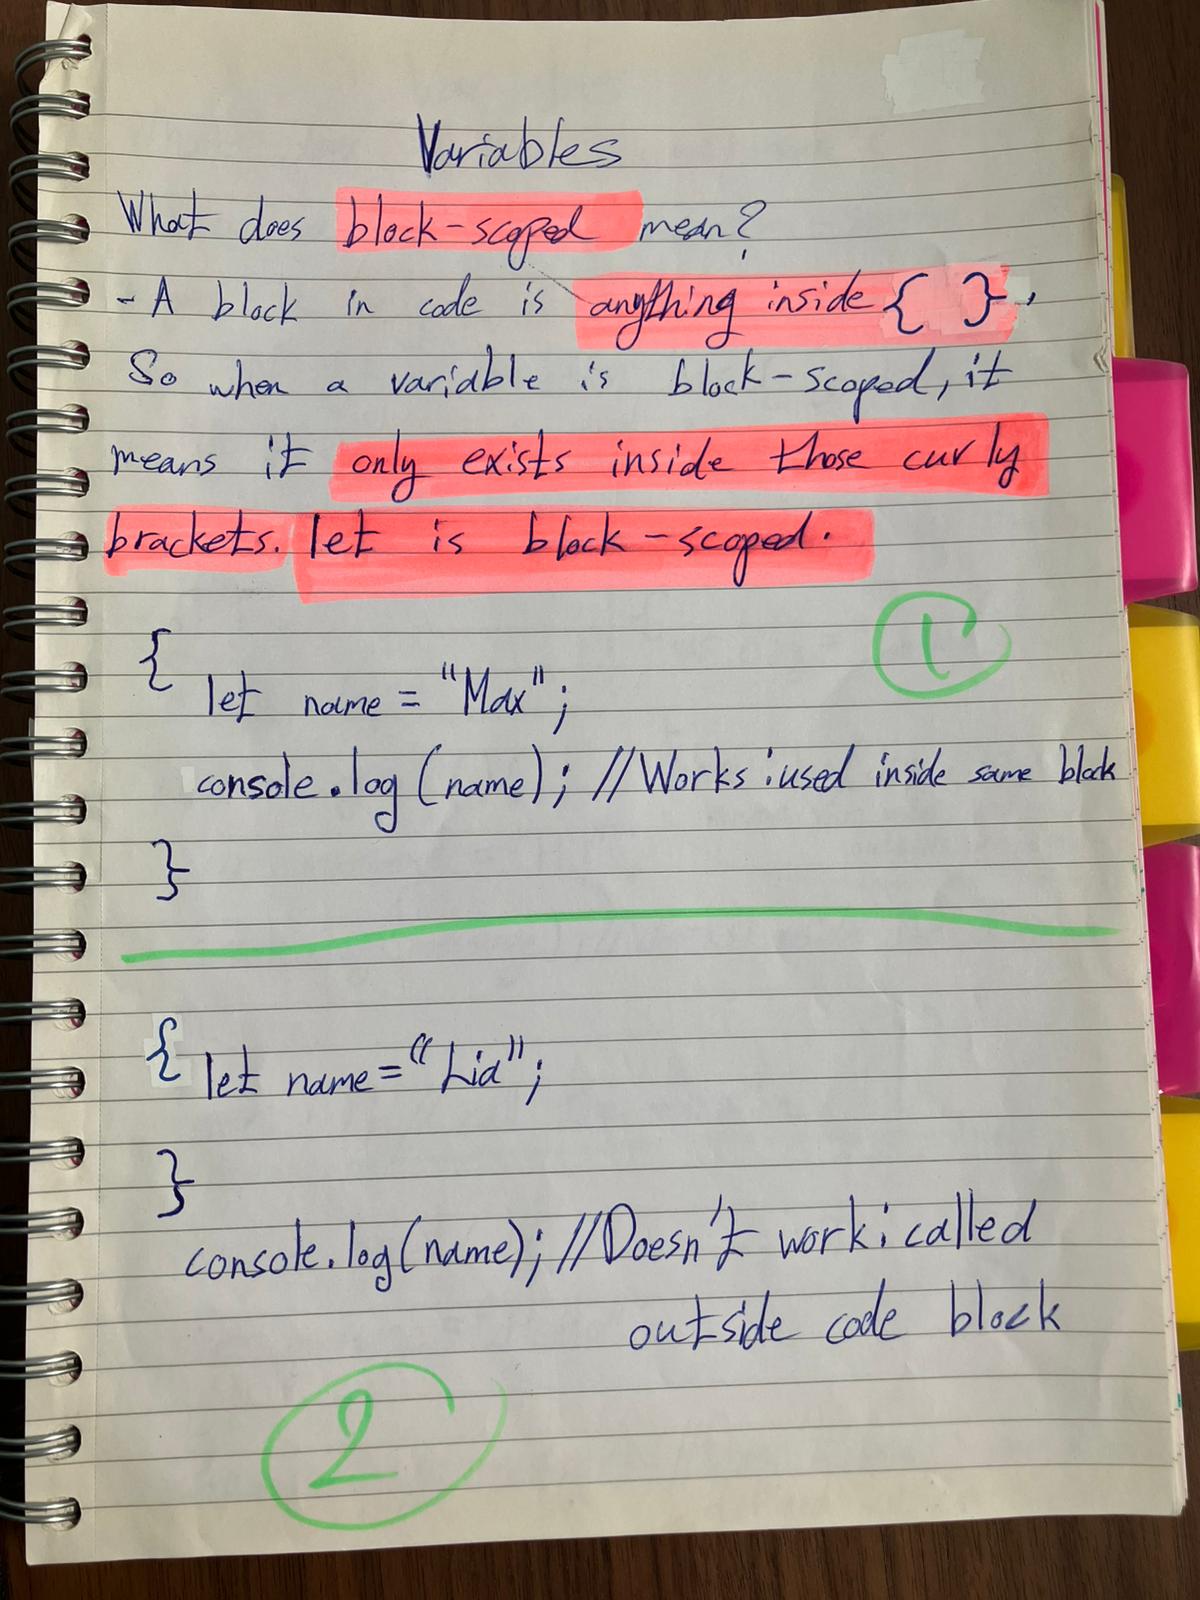 Variables
What does block-scoped mean?
- A block in code is anything inside { }.
So when a variable is block-scoped, it
means it only exists inside those curly
brackets. let is block-scoped.
1
{
let name = "Max";
console.log(name); //Works: used inside same block
}
{ let name = "Lia";
}
console.log(name); //Doesn't work: called
outside code block
2